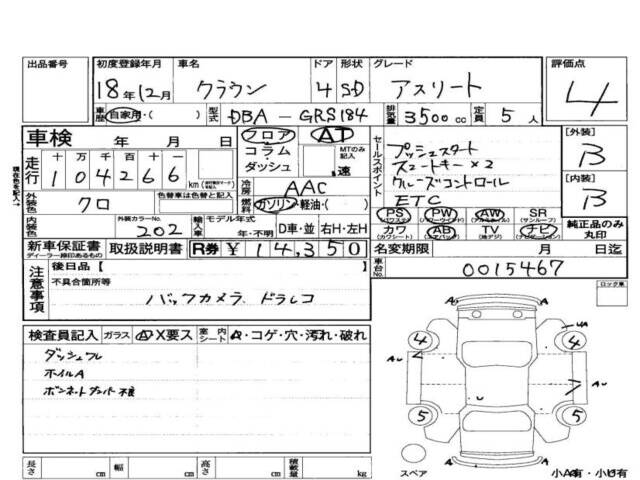 出品番号 初度登録年月 車名 ドア 形状 グレード 評価点
18年12月 クラウン 4 SD アスリート 4
車歴 自家用・( ) 型式 DBA-GRS184 排気量 3500cc 定員 5人
車検 年 月 日 フロア AT
コラム・ダッシュ MTのみ記入 速
走行 十万千百十一
104266 km
冷房 AAC
外装色 クロ 色替車は色替と記入 燃料 ガソリン・軽油・( )
内装色 外装カラーNo. 202 輸入車 モデル年式 年・不明 D車・並 右H・左H
セールスポイント
プッシュスタート
スマートキー×2
クルーズコントロール
ETC
PS PW AW SR (サンルーフ)
カワ (カワシート) AB TV (地デジ) ナビ
[外装]
B
[内装]
B
純正品のみ丸印
新車保証書 ディーラー捺印あるもの 取扱説明書 R券 ¥14,350
名変期限 月 日迄
車台No. 0015467
注意事項
後日品【 】
不具合箇所等
バックカメラ ドラレコ
ロック車
検査員記入 ガラス A・X要ス 室内シート A・コゲ・穴・汚れ・破れ
ダッシュフレ
ホイルA
ボンネットダンパー不良
A A
4 4
UA
AU AU
U
5 5
A A
スペア 小A有・小U有
長さ cm 幅 cm 高さ cm 積載量 kg